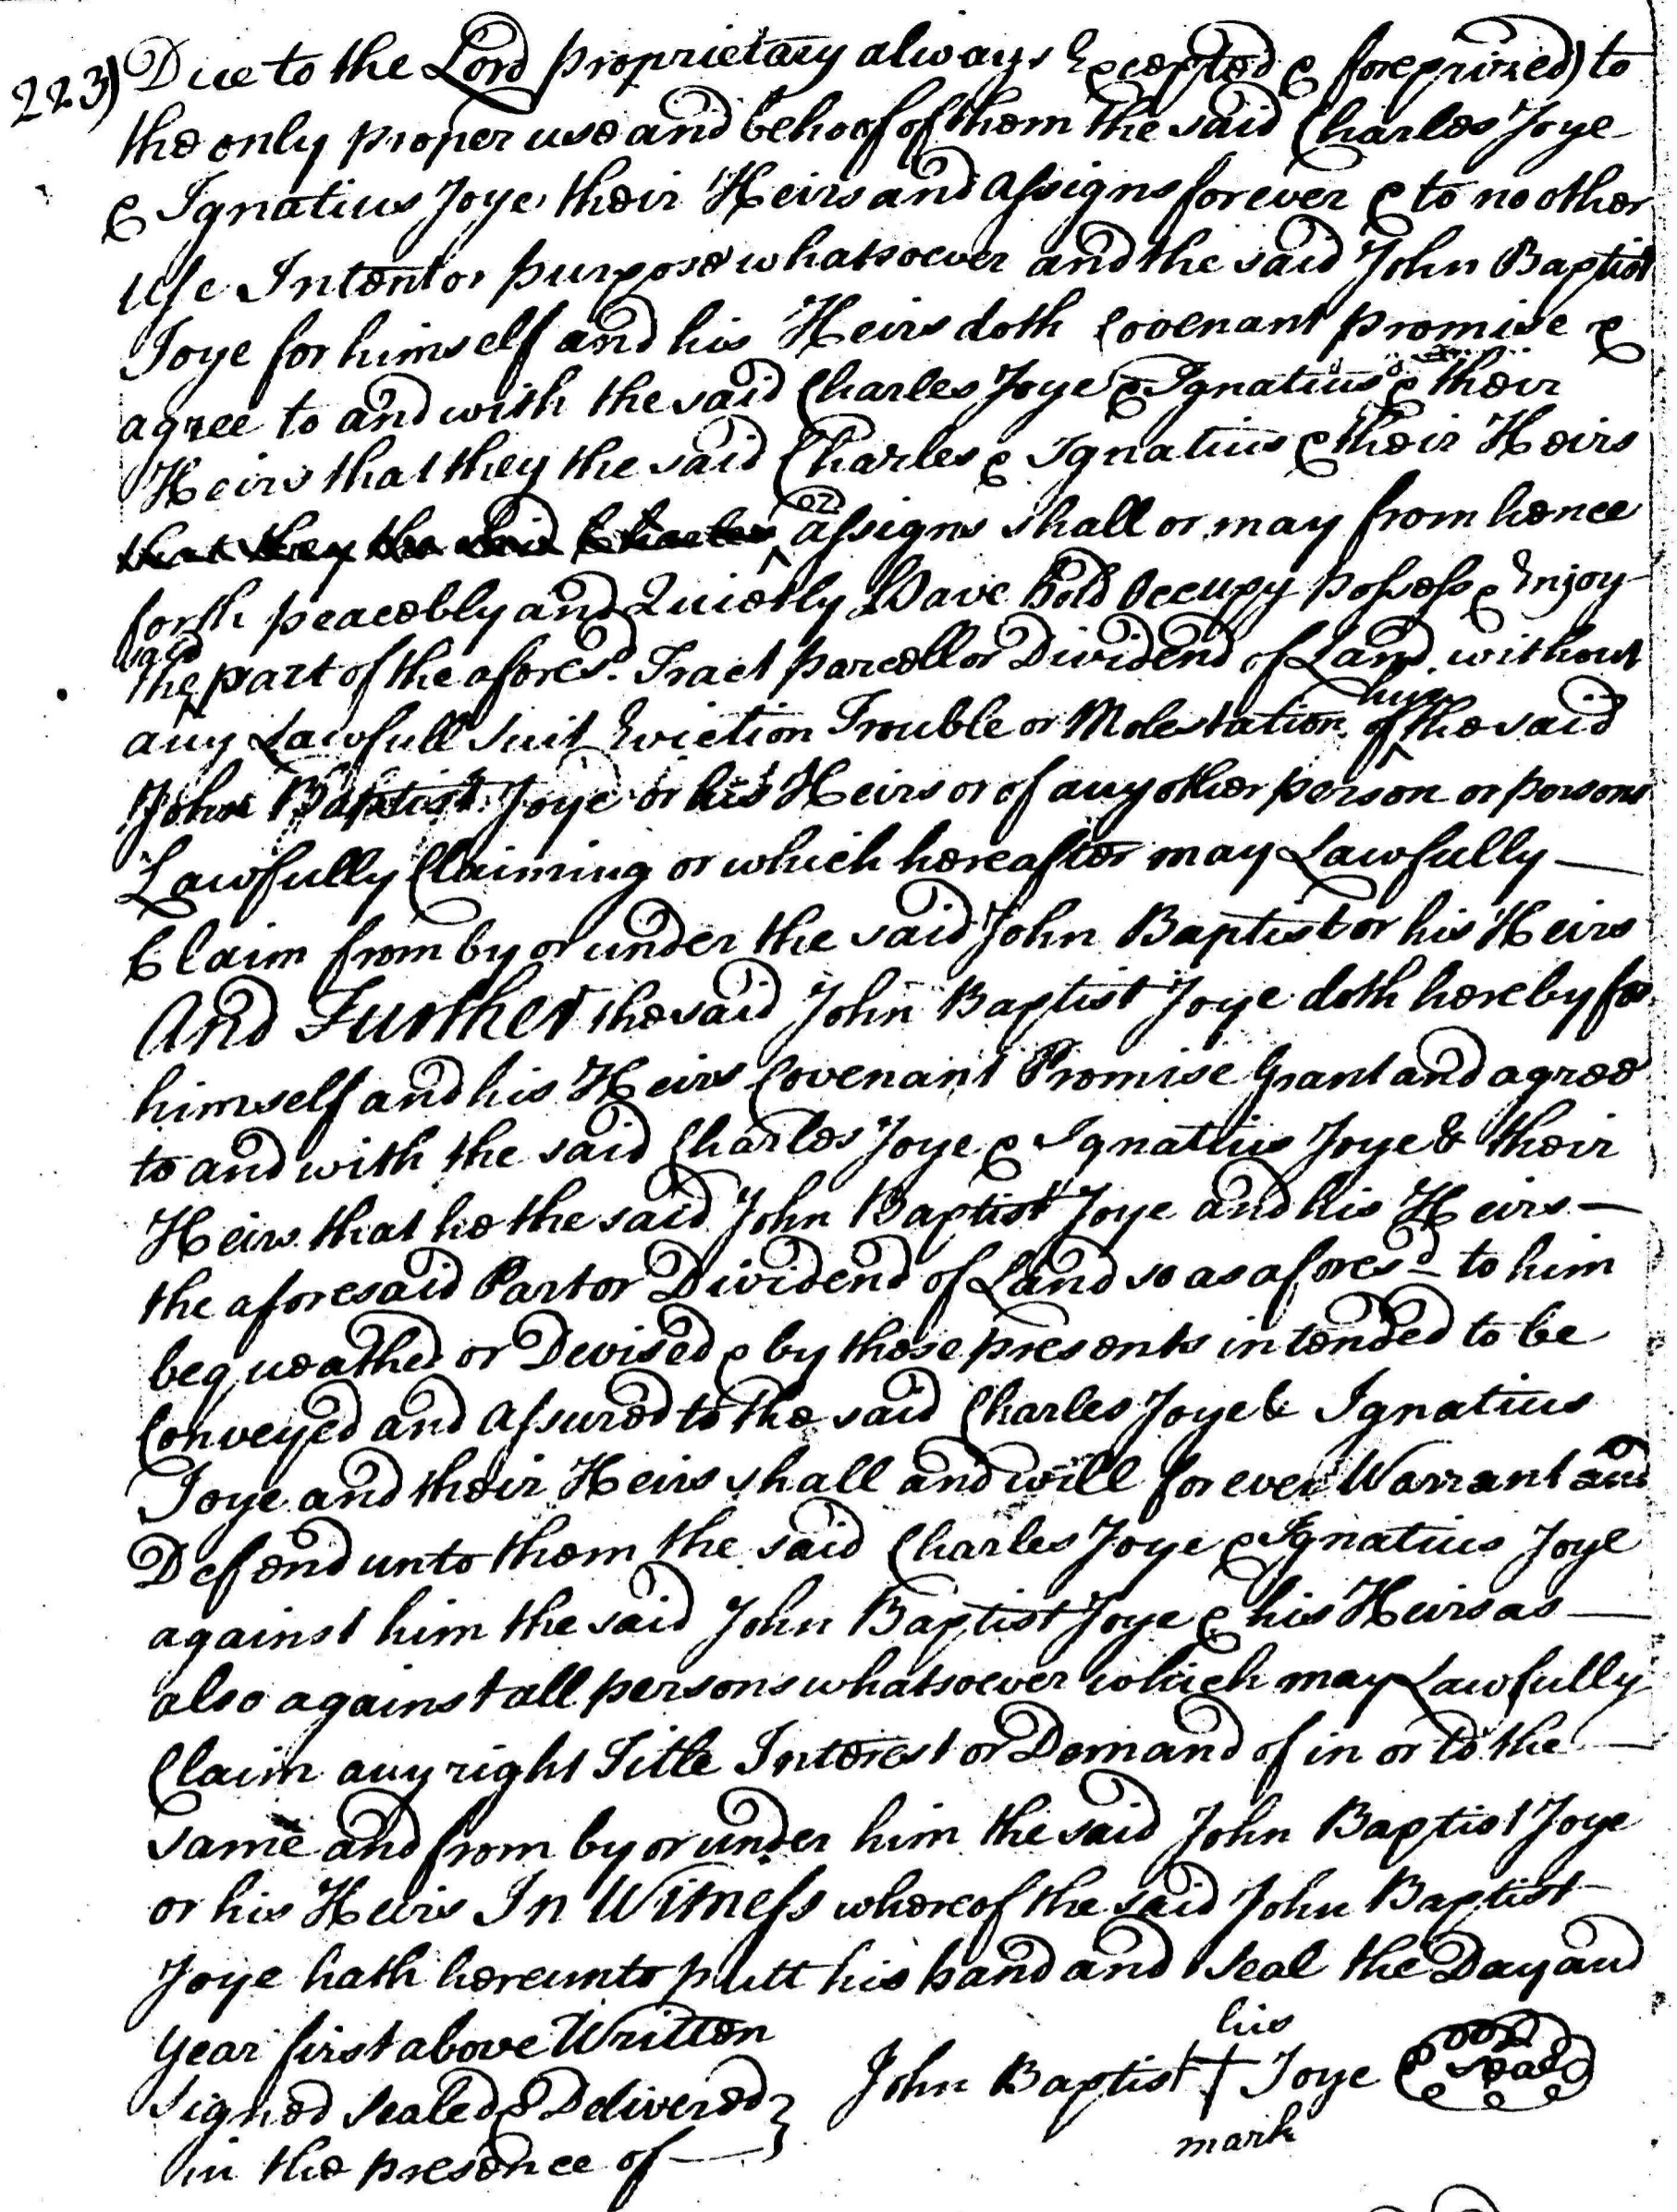 223) Due to the Lord proprietary always Excepted & foreprized) to
the only proper use and behoof of them the said Charles Joye
& Ignatius Joye their Heirs and assigns forever & to no other
Use Intent or purpose whatsoever and the said John Baptist
Joye for himself and his Heirs doth Covenant promise &
agree to and with the said Charles Joye & Ignatius & their
Heirs that they the said Charles & Ignatius & their Heirs
that they the said Charles ^or assigns shall or may from hence
forth peacebly and Quietly Have hold Occupy possess & Enjoy
the ^said part of the aforesd. Tract parcell or Dividend of Land without
any Lawfull Suit Eviction Trouble or Molestation of ^him the said
John Baptist Joye or his Heirs or of any other person or persons
Lawfully Claiming or which hereafter may Lawfully —
Claim from by or under the said John Baptist or his Heirs
And Further the said John Baptist Joye doth hereby for
himself and his Heirs Covenant Promise Grant and agree
to and with the said Charles Joye & Ignatius Joye & their
Heirs that he the said John Baptist Joye and his Heirs —
the aforesaid Part or Dividend of Land so as aforesd to him
bequeathed or Devised & by these presents intended to be
Conveyed and assured to the said Charles Joye & Ignatius
Joye and their Heirs shall and will forever Warrant and
Defend unto them the said Charles Joye & Ignatius Joye
against him the said John Baptist Joye & his Heirs as —
also against all persons whatsoever which may Lawfully
Claim any right Title Interest or Demand of in or to the —
same and from by or under him the said John Baptist Joye
or his Heirs In Witness whereof the said John Baptist
Joye hath hereunto putt his hand and Seal the Day and
year first above Written
Signed Sealed & Delivered }
in the presence of —
his
John Baptist + Joye Seal
mark